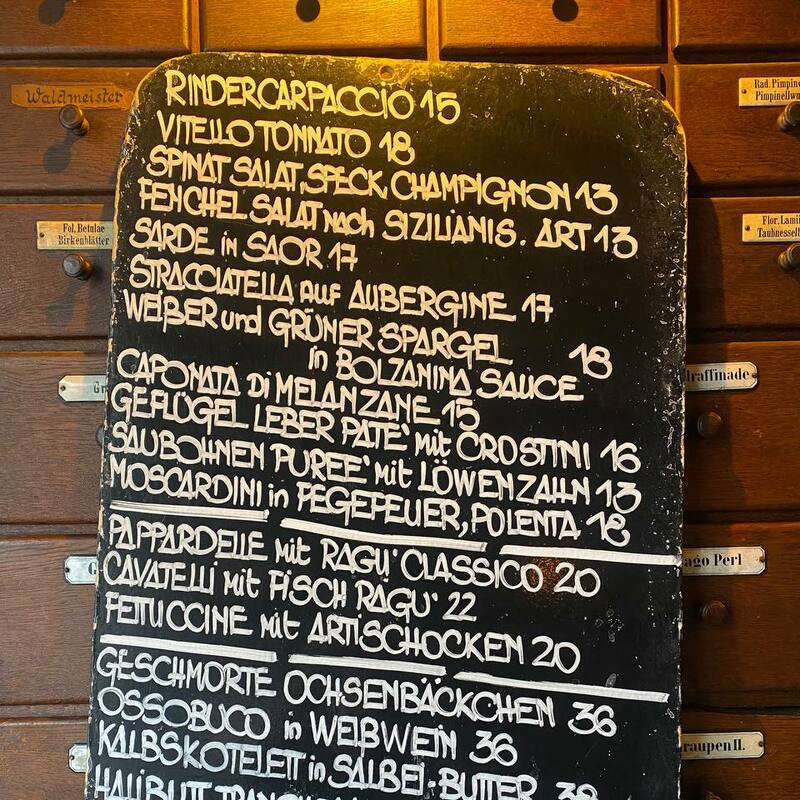 RINDERCARPACCIO 15
VITELLO TONNATO 18
SPINAT SALAT, SPECK, CHAMPIGNON 13
FENCHEL SALAT nach SIZILIANIS. ART 13
SARDE in SAOR 17
STRACCIATELLA auf AUBERGINE 17
WEIßER und GRÜNER SPARGEL
in BOLZANINA SAUCE 18
CAPONATA Di MELANZANE 15
GEFLÜGEL LEBER PATE' mit CROSTINI 16
SAUBOHNEN PUREE' mit LÖWENZAHN 13
MOSCARDINI in FEGEFEUER, POLENTA 18
PAPPARDELLE mit RAGU' CLASSICO 20
CAVATELLI mit FISCH RAGU' 22
FETTUCCINE mit ARTISCHOCKEN 20
GESCHMORTE OCHSENBÄCKCHEN 36
OSSOBUCO in WEIßWEIN 36
KALBSKOTELETT in SALBEI-BUTTER 38
HALIBUTT
Waldmeister
Fol. Betulae
Birkenblätter
Rad. Pimpine
Pimpinellwu
Flor. Lami
Taubnessell
lraffinade
ago Perl
raupen II.